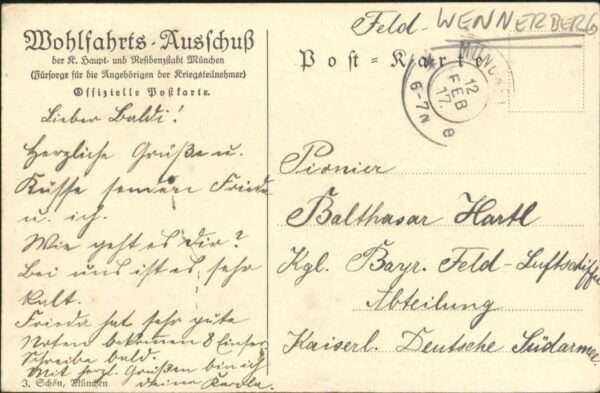 Wohlfahrts-Ausschuß
der K. Haupt- und Residenzstadt München
(Fürsorge für die Angehörigen der Kriegsteilnehmer)
Offizielle Postkarte.
Lieber Baldi!
Herzliche Grüße u.
Küsse senden Frieda
u. ich.
Wie geht es Dir?
Bei uns ist es sehr
kalt.
Frieda hat sehr gute
Noten bekommen 8 Einser
Schreibe bald.
Mit herzl. Grüßen bin ich
deine Karla.
J. Schön, München
Feld- WENNERBERG
Post-Karte
MÜNCHEN
12
FEB
17.
6-7N
8
Pionier
Balthasar Hartl
Kgl. Bayr. Feld-Luftschiffer
Abteilung
Kaiserl. Deutsche Südarmee